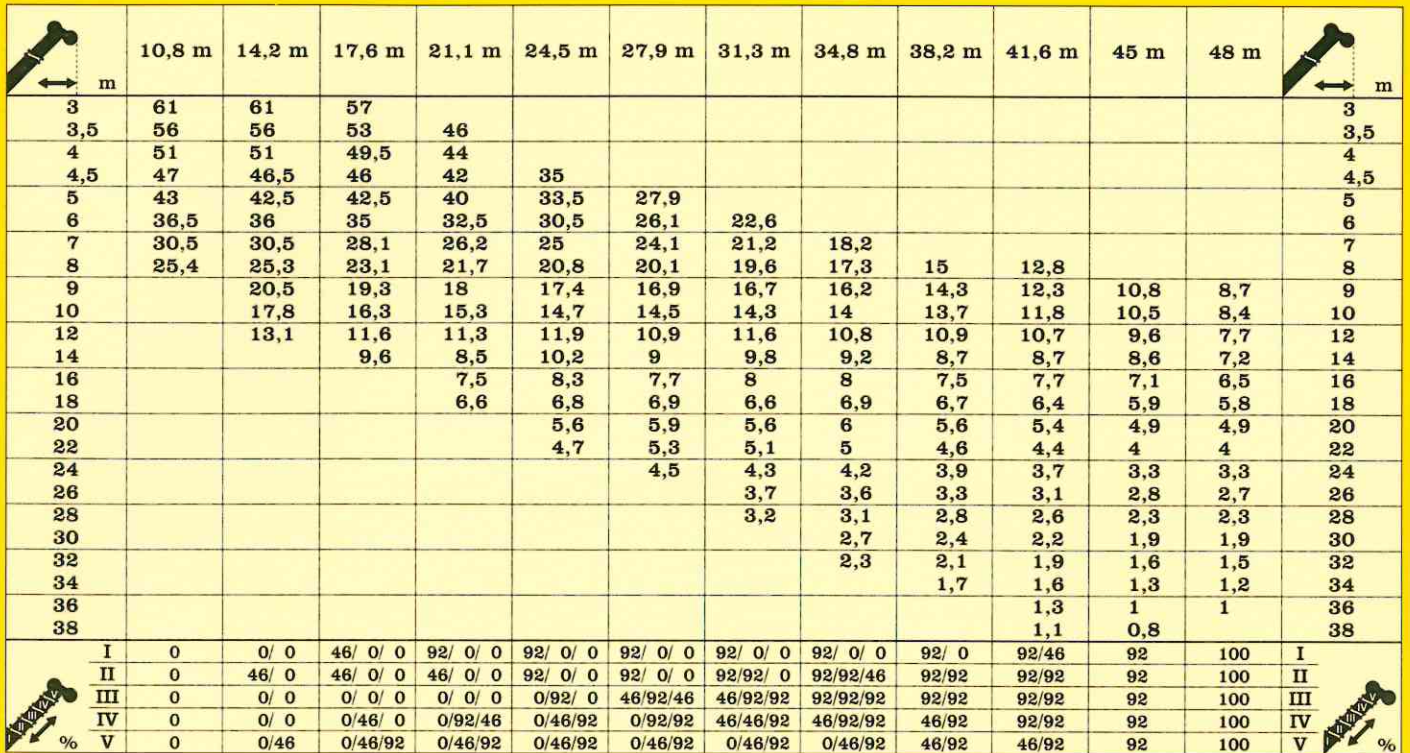 m 10,8 m 14,2 m 17,6 m 21,1 m 24,5 m 27,9 m 31,3 m 34,8 m 38,2 m 41,6 m 45 m 48 m m
3 61 61 57 3
3,5 56 56 53 46 3,5
4 51 51 49,5 44 4
4,5 47 46,5 46 42 35 4,5
5 43 42,5 42,5 40 33,5 27,9 5
6 36,5 36 35 32,5 30,5 26,1 22,6 6
7 30,5 30,5 28,1 26,2 25 24,1 21,2 18,2 7
8 25,4 25,3 23,1 21,7 20,8 20,1 19,6 17,3 15 12,8 8
9 20,5 19,3 18 17,4 16,9 16,7 16,2 14,3 12,3 10,8 8,7 9
10 17,8 16,3 15,3 14,7 14,5 14,3 14 13,7 11,8 10,5 8,4 10
12 13,1 11,6 11,3 11,9 10,9 11,6 10,8 10,9 10,7 9,6 7,7 12
14 9,6 8,5 10,2 9 9,8 9,2 8,7 8,7 8,6 7,2 14
16 7,5 8,3 7,7 8 8 7,5 7,7 7,1 6,5 16
18 6,6 6,8 6,9 6,6 6,9 6,7 6,4 5,9 5,8 18
20 5,6 5,9 5,6 6 5,6 5,4 4,9 4,9 20
22 4,7 5,3 5,1 5 4,6 4,4 4 4 22
24 4,5 4,3 4,2 3,9 3,7 3,3 3,3 24
26 3,7 3,6 3,3 3,1 2,8 2,7 26
28 3,2 3,1 2,8 2,6 2,3 2,3 28
30 2,7 2,4 2,2 1,9 1,9 30
32 2,3 2,1 1,9 1,6 1,5 32
34 1,7 1,6 1,3 1,2 34
36 1,3 1 1 36
38 1,1 0,8 38
I 0 0/ 0 46/ 0/ 0 92/ 0/ 0 92/ 0/ 0 92/ 0/ 0 92/ 0/ 0 92/ 0/ 0 92/ 0 92/46 92 100 I
II 0 46/ 0 46/ 0/ 0 46/ 0/ 0 92/ 0/ 0 92/ 0/ 0 92/92/ 0 92/92/46 92/92 92/92 92 100 II
III 0 0/ 0 0/ 0/ 0 0/ 0/ 0 0/92/ 0 46/92/46 46/92/92 92/92/92 92/92 92/92 92 100 III
IV 0 0/ 0 0/46/ 0 0/92/46 0/46/92 0/92/92 46/46/92 46/92/92 46/92 92/92 92 100 IV
% V 0 0/46 0/46/92 0/46/92 0/46/92 0/46/92 0/46/92 0/46/92 46/92 46/92 92 100 V %